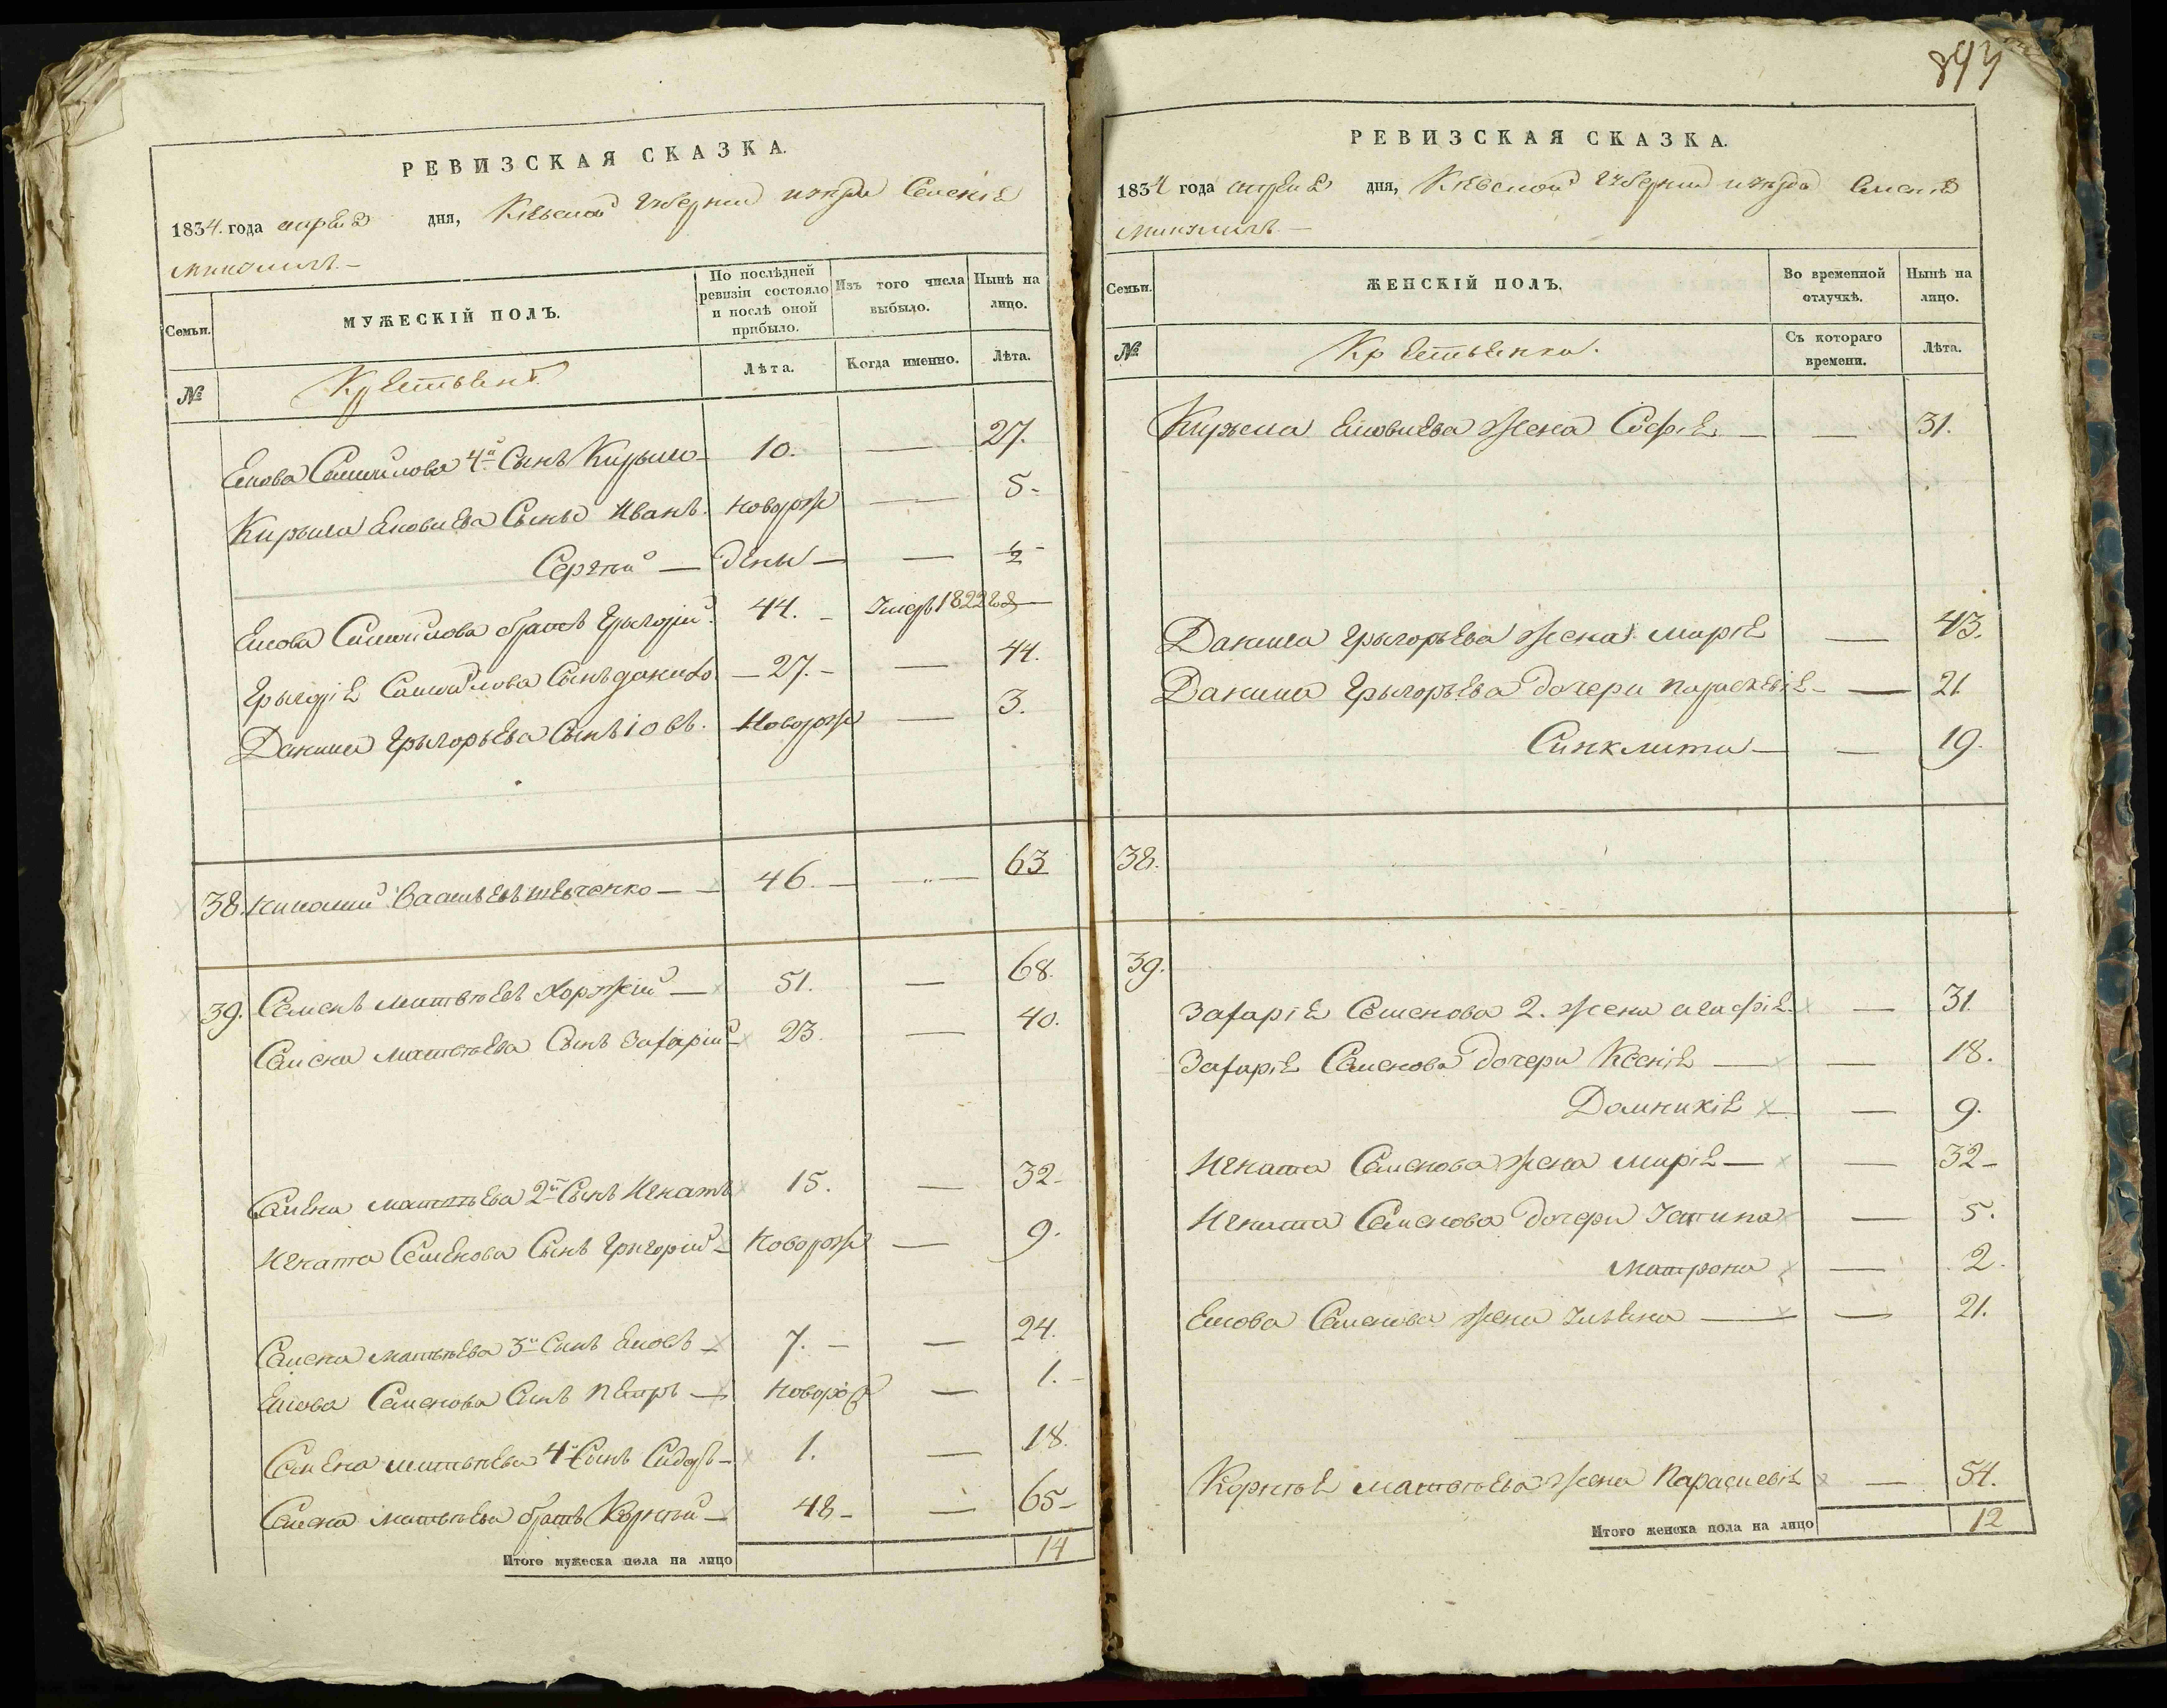 РЕВИЗСКАЯ СКАЗКА.
1834. года апреля дня, Киевской Губернии
Семьи.
МУЖЕСКІЙ ПОЛЪ.
По послѣдней ревизіи состояло и послѣ оной прибыло.
Изъ того числа выбыло.
Нынѣ на лицо.
№
Лѣта.
Когда именно.
Лѣта.
Якова Самойлова 4й Сынъ Кирыло 10. — 27.
Кирыла Яковлева Сыны Иванъ. новорож — 5-
Сергѣй — — ½
Якова Самойлова братъ Грыгорій 44. - Умеръ 1822 год —
Грыгорія Самойлова Сынъ данило — 27. - — 44.
Данила Грыгорьева Сынъ іовъ. Новорож — 3.
38. николай Васильевъ шевченко — — 46. — — 63
39. Семенъ матвѣевъ Коржій — 51. — 68.
Семена матвѣева Сынъ Захарій 23. — 40.
Семена матвѣева 2й Сынъ Игнатъ 15. — 32-
Игната Семенова Сынъ Грыгорій новорож — 9.
Семена матвѣева 3й Сынъ Яковъ — 7. — — 24.
Якова Семенова Сынъ петръ — новорож — 1. -
Семена матвѣева 4й Сынъ Сидоръ — 1. — 18.
Семена матвѣева братъ Корнѣй — 48 - — 65 -
Итого мужеска пола на лицо 14
843
РЕВИЗСКАЯ СКАЗКА.
1834 года апреля дня, Киевской Губернии
Семьи.
ЖЕНСКІЙ ПОЛЪ.
Во временной отлучкѣ.
Нынѣ на лицо.
№
Съ котораго времени.
Лѣта.
Кирыла Яковлева жена Софія — — 31.
Данила Грыгорьева жена марія — 43.
Данила Грыгорьева дочери параскевія — — 21
Синклита — — 19.
38.
39.
Захарія Семенова 2. жена агафія — 31.
Захарія Семенова дочери Ксенія — — 18.
Домникія — — 9.
Игната Семенова жена марія — — 32 -
Игната Семенова дочери Устина — 5.
матрона — 2.
Якова Семенова жена Ульяна — — 21.
Корнѣя матвѣева жена Параскевія — 54.
Итого женска пола на лицо 12